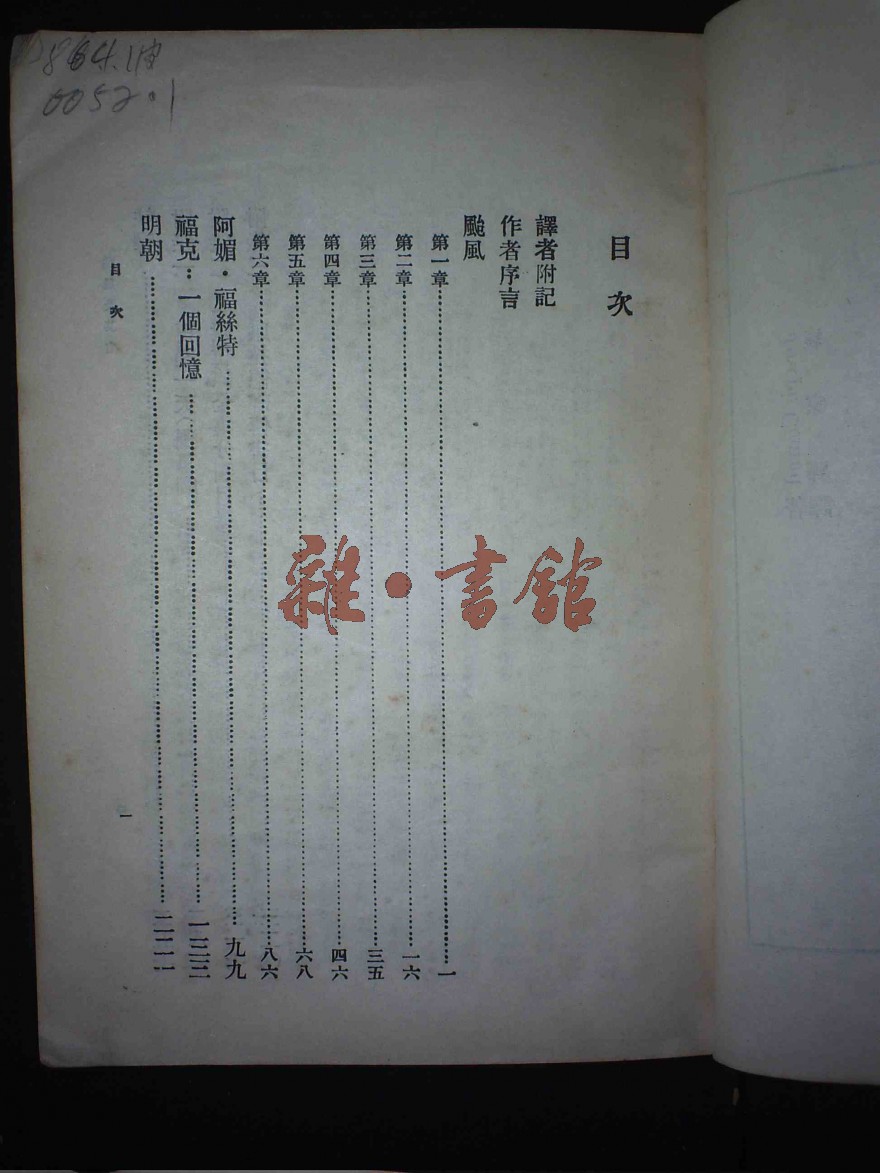 目次
譯者附記
作者序言
颱風
第一章……一
第二章……一六
第三章……三五
第四章……四六
第五章……六八
第六章……八六
阿媚・福絲特……九九
福克：一個回憶……一三二
明朝……二二一
目次
一
雜•書館